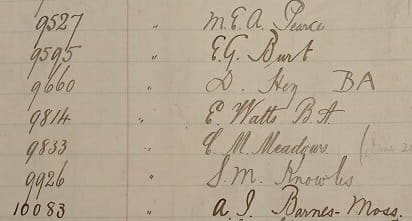 9527 " M. E. A. Pearce
9595 " E. G. Burt
9660 " D. Hey BA
9814 " E. Watts B.A.
9833 " C. M. Meadows (June
9926 " S. M. Knowles
10083 " A. J. Barnes-Moss.